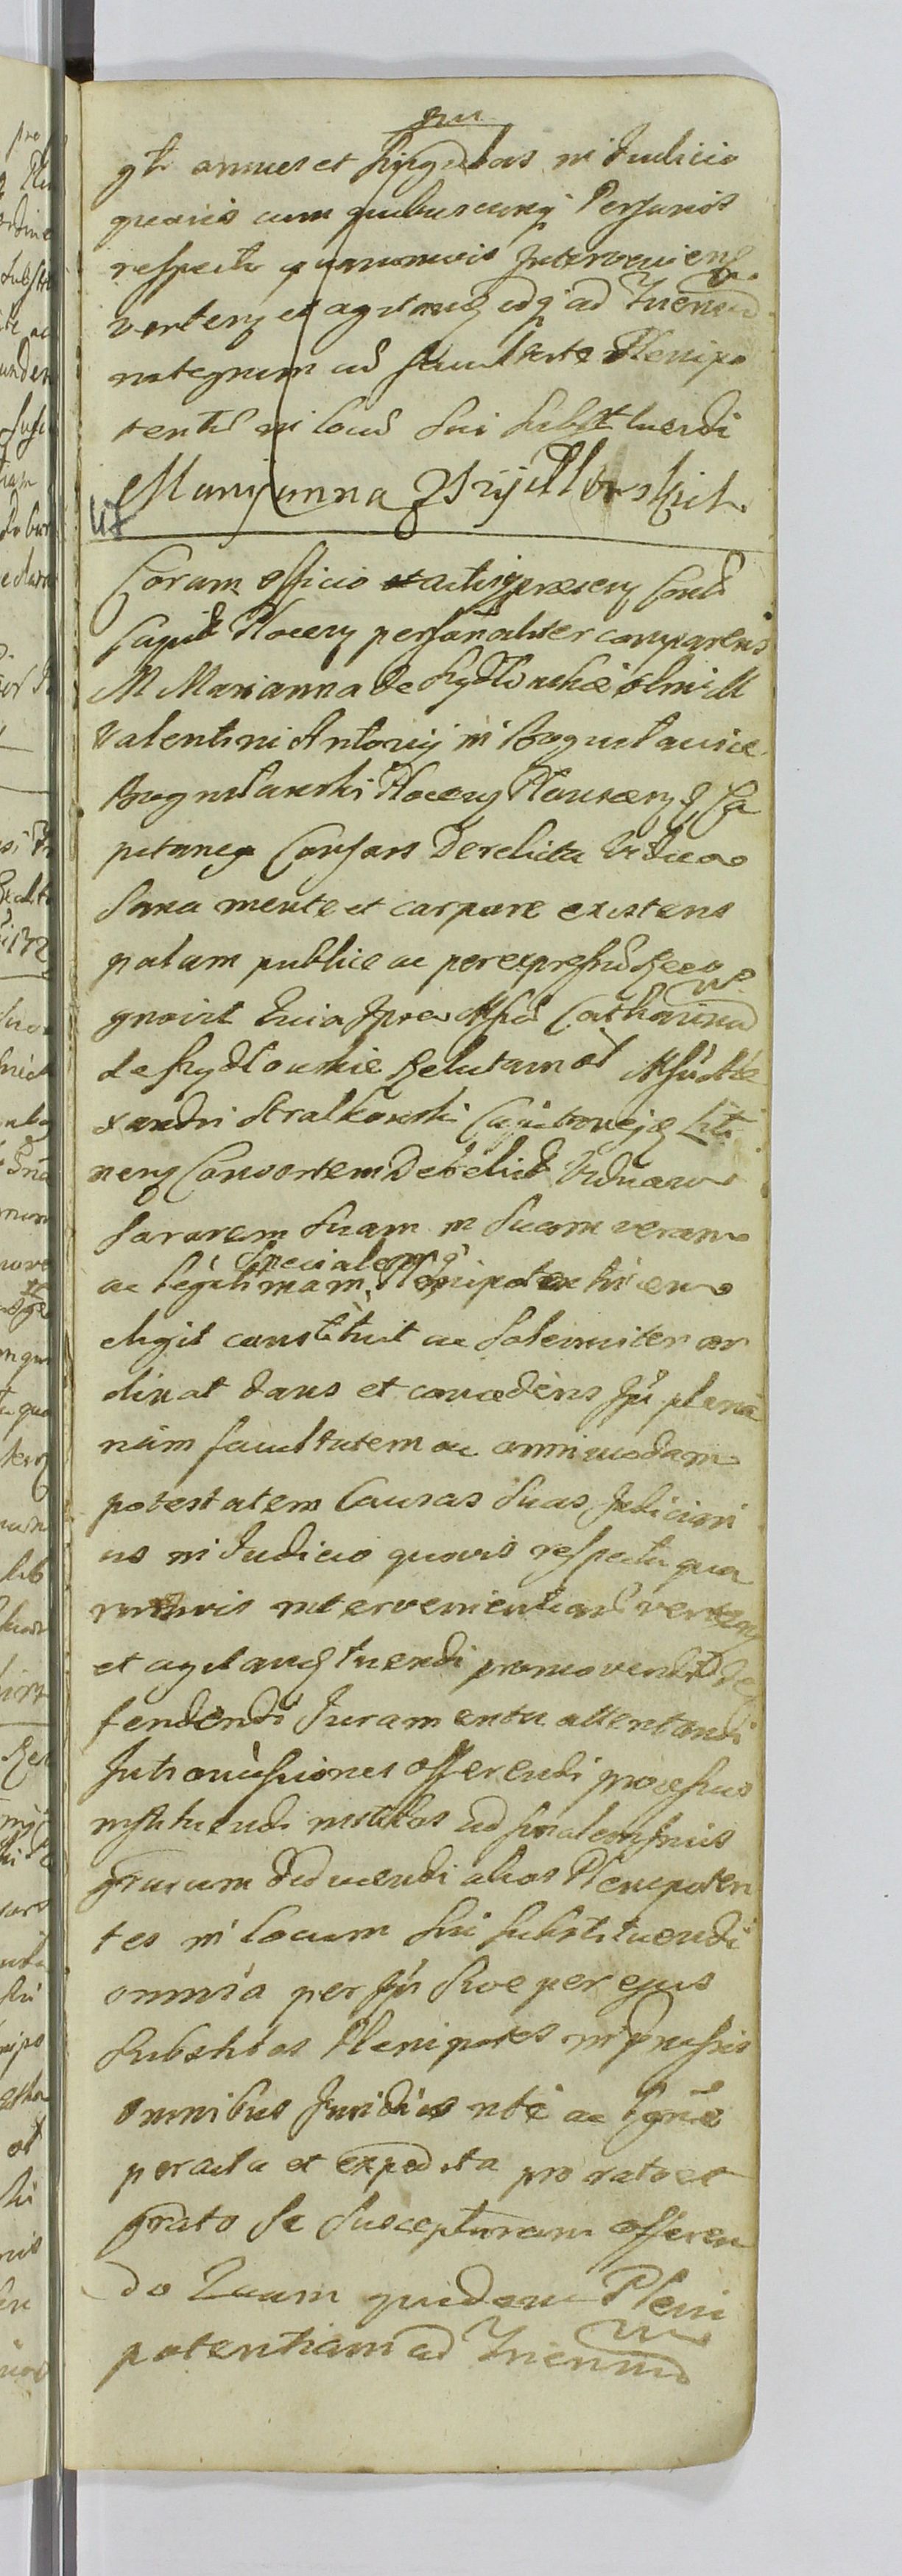 gnr
gtr omnes et singulas in Judicio
quovis cum quibuscunq Personis
respectu quorumvis Interveniens
verten et agitan idq ad Trienniu
integrum cu facultate Plenipo
tente in locu sui substituendi
Maryanna z Kryskich
Coram officio actisq praesen Cast
Capit Plocen personaliter comparens
M Marianna de Szydłowskie olim M
Valentini Antonij in Bogusławice
Bogusławski Plocen Plonscen &
petaneg Consors Derelicta Vidua
sana mente et corpore existens
palam publice ac per expressu Reco
gnovit Quia Ipsa Mfca Catharina
de Szydłowskie Relictam ol Mfci Ale
xandri Stralkowski Liti
nen Consortem Derelict Viduam
sororem suam in suam veram
ac legitimam Specialemq Plenipotentricem
elegit constituit ac solenniter or
dinat dans et concedens Ipi plena
riam facultatem ac omnimodam
potestatem Causas suas Judiciari
as in Judicio quovis respectu quo
rumvis intervenientium verten
et agitan tuendi promovendi de
fendendi Juramenta attentandi
Intromissiones offerendi processus
instituendi institos ad finalem juris
gradum deducendi alios Plenipoten
tes in locum sui substituendi
omnia per Ipm sive per ejus
substitos Plenipotes in praemissis
omnibus Juridice rite ac legne
peracta et expedita pro rato et
grato se suscepturam offeren
do Quam quidem Pleni
potentiam ad Trienniu